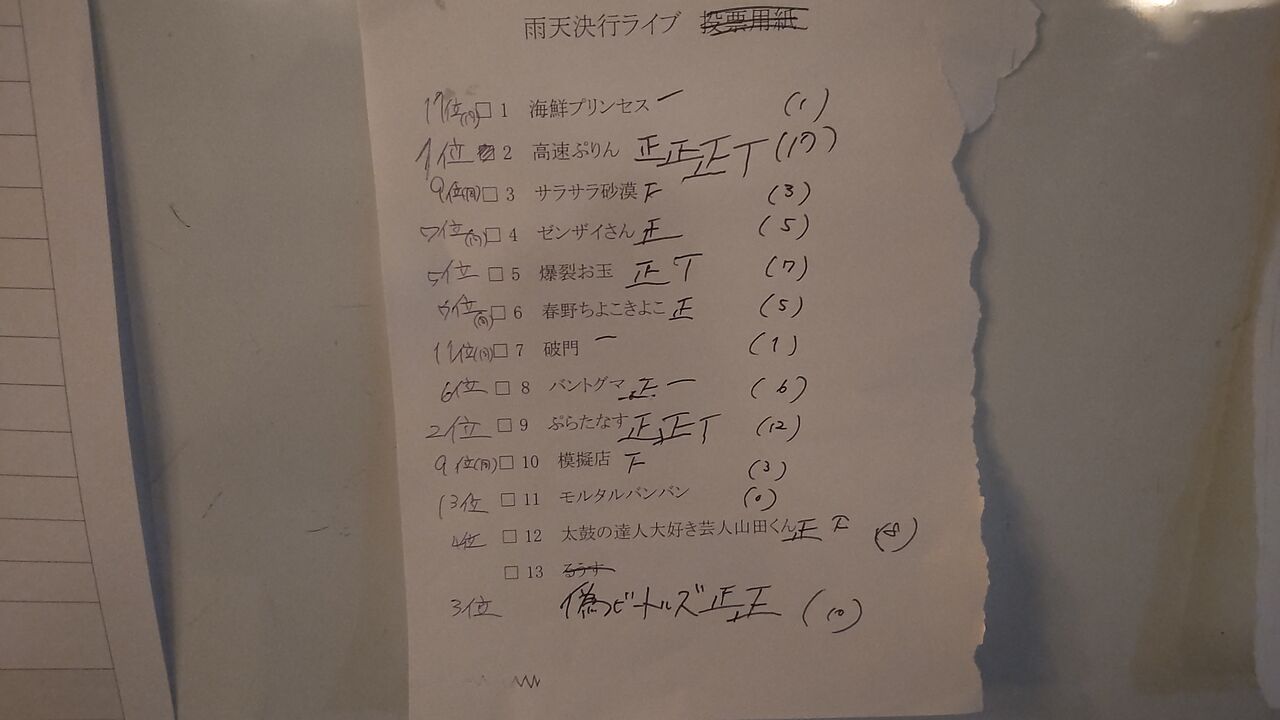 雨天決行ライブ 投票用紙
11位(同)□ 1 海鮮プリンセス 一 (1)
1位 □ 2 高速ぷりん 正正正丅 (17)
9位(同)□ 3 サラサラ砂漠 下 (3)
7位(同)□ 4 ゼンザイさん 正 (5)
5位 □ 5 爆裂お玉 正丅 (7)
7位(同)□ 6 春野ちよこきよこ 正 (5)
11位(同)□ 7 破門 一 (1)
6位 □ 8 バントグマ 正一 (6)
2位 □ 9 ぷらたなす 正正丅 (12)
9位(同)□ 10 模擬店 下 (3)
13位 □ 11 モルタルバンバン (0)
4位 □ 12 太鼓の達人大好き芸人山田くん 正下 (8)
□ 13 るうす
3位 偽ビートルズ 正正 (10)